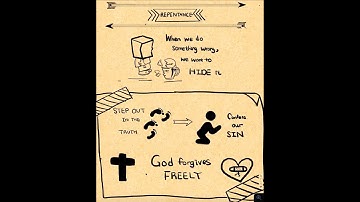 REPENTANCE
When we do
something wrong,
we want to
HIDE it
STEP OUT
IN THE
TRUTH
Confess
our
SIN
God forgives
FREELY